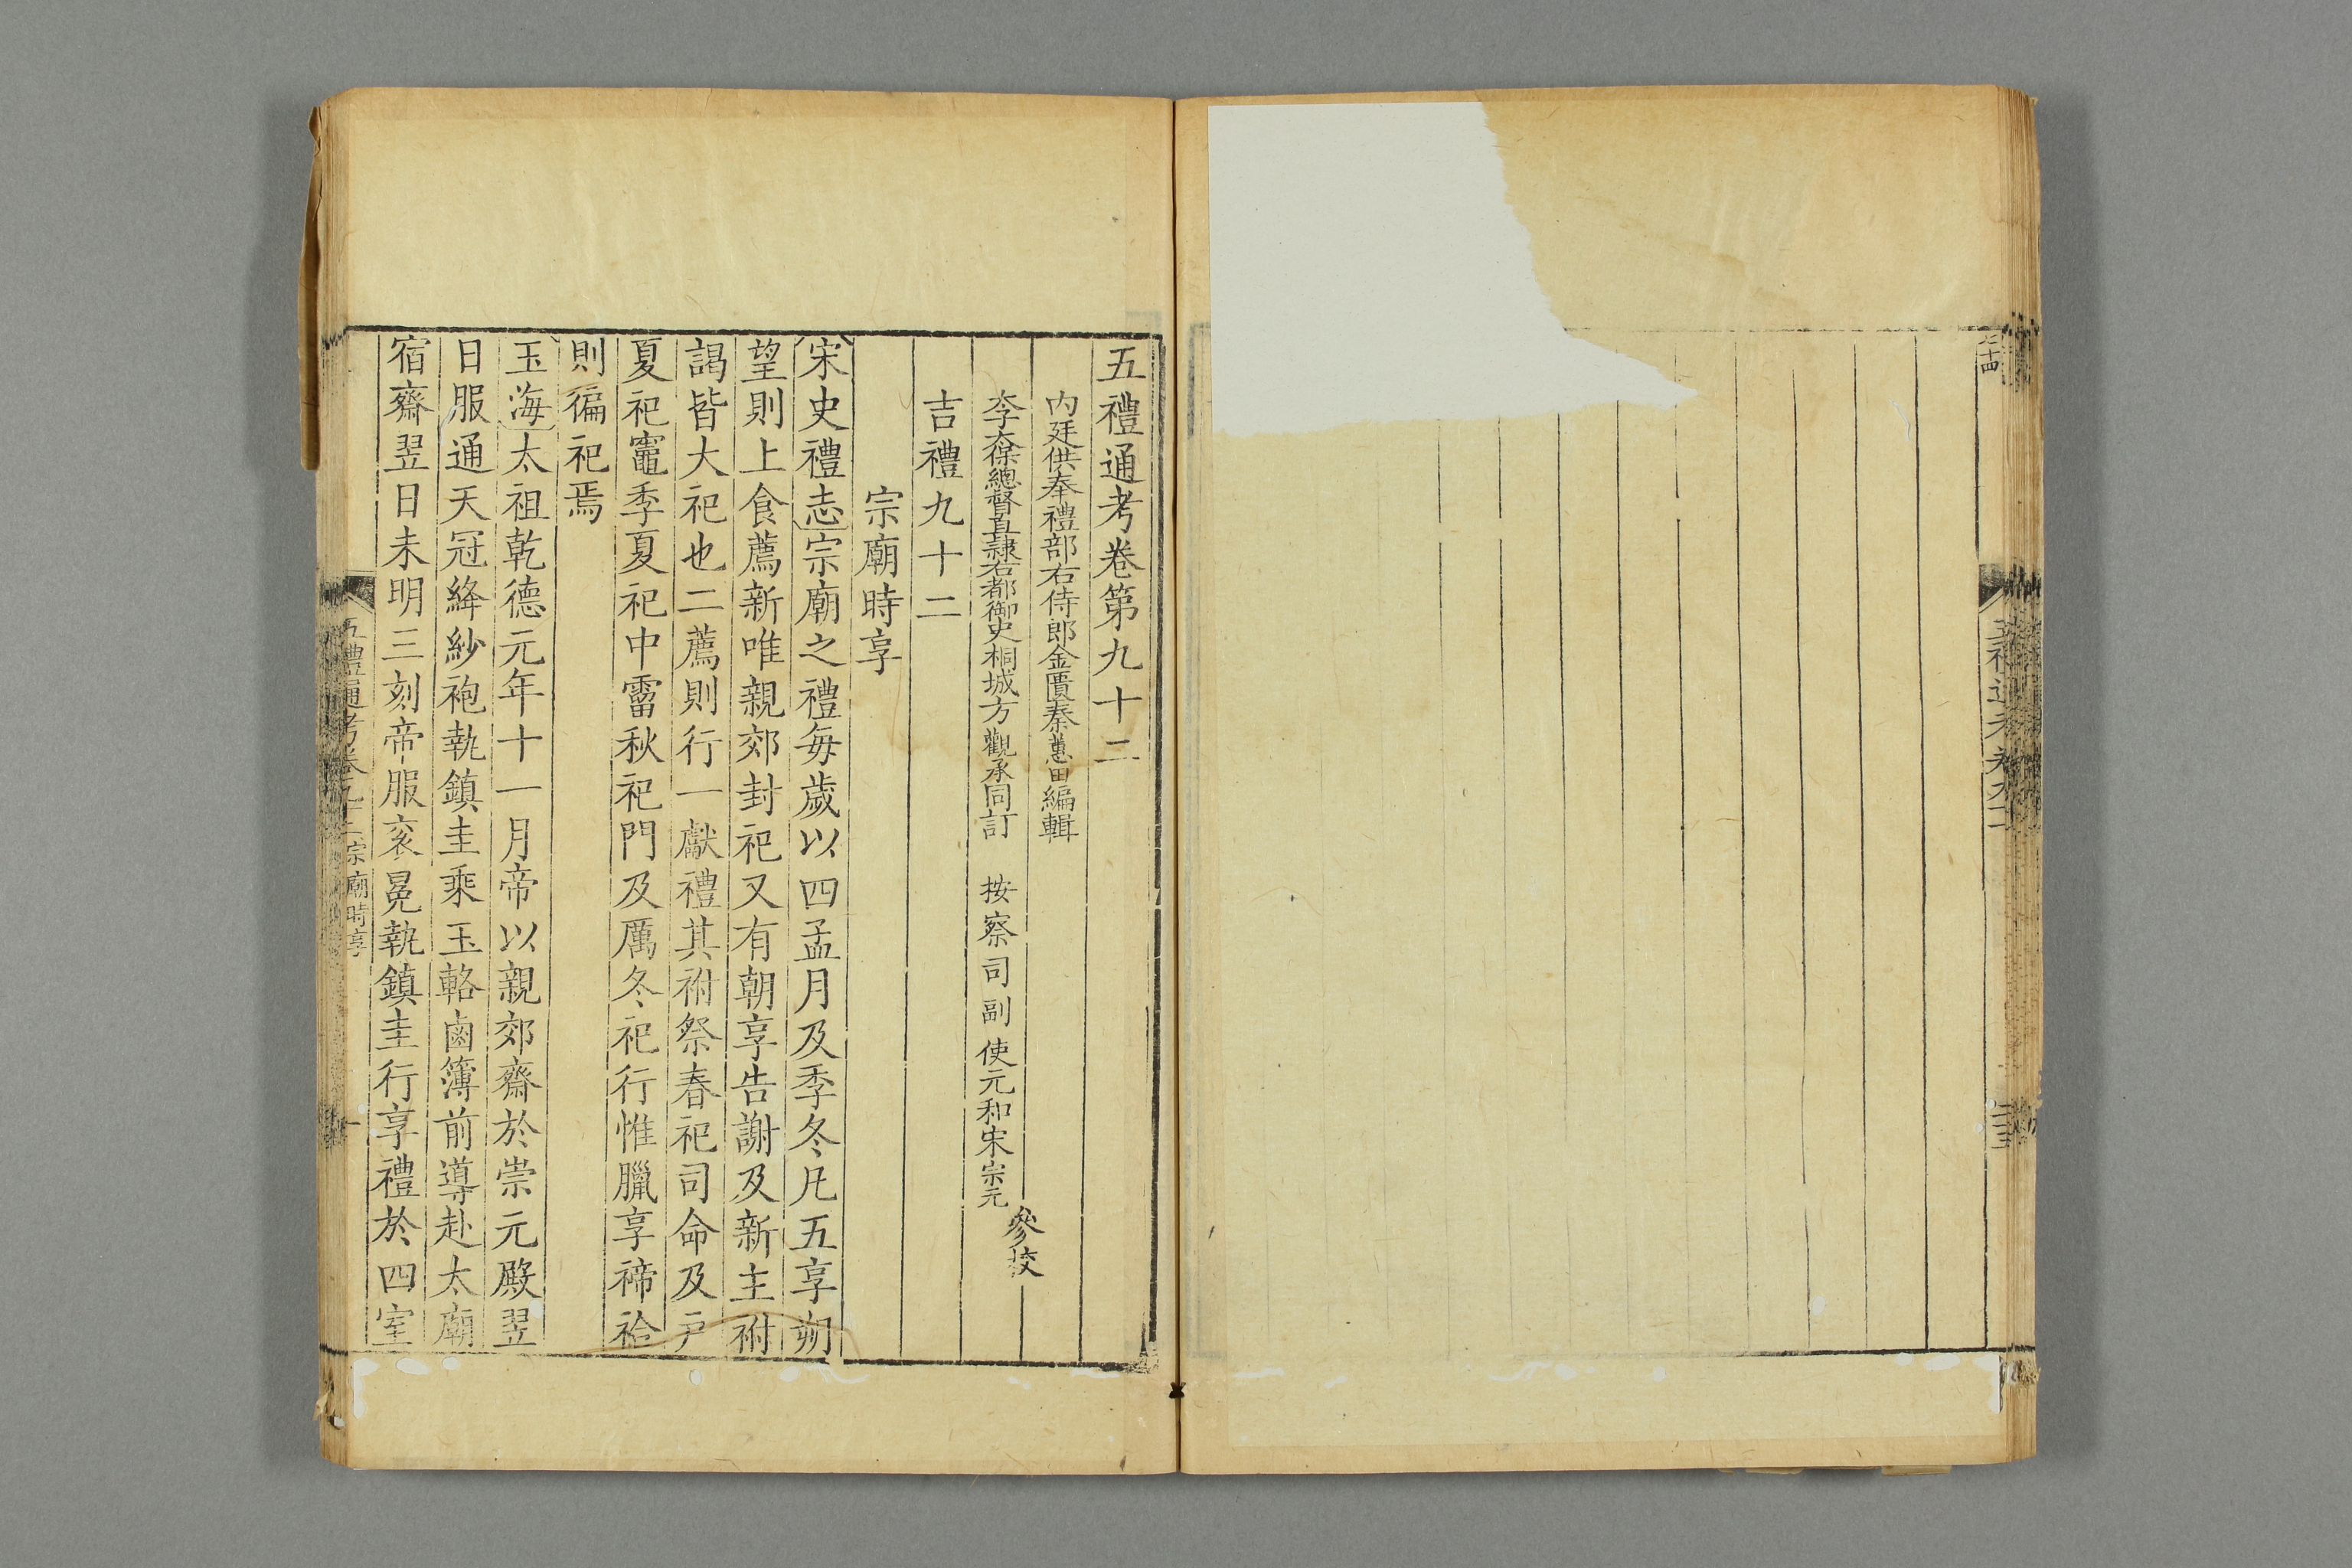 五禮通考卷第九十二
內廷供奉禮部右侍郎金匱秦蕙田編輯
太子太保總督直隸右都御史桐城方觀承同訂 按察司副使元和宋宗元
參校
吉禮九十二
宗廟時享
宋史禮志宗廟之禮每歲以四孟月及季冬凡五享朔
望則上食薦新唯親郊封祀又有朝享告謝及新主祔
謁皆大祀也二薦則行一獻禮其祔祭春祀司命及戶
夏祀竈季夏祀中霤秋祀門及厲冬祀行惟臘享禘祫
則徧祀焉
玉海太祖乾德元年十一月帝以親郊齋於崇元殿翌
日服通天冠絳紗袍執鎮圭乘玉輅鹵簿前導赴太廟
宿齋翌日未明三刻帝服衮冕執鎮圭行享禮於四室
五禮通考卷九十二宗廟時享